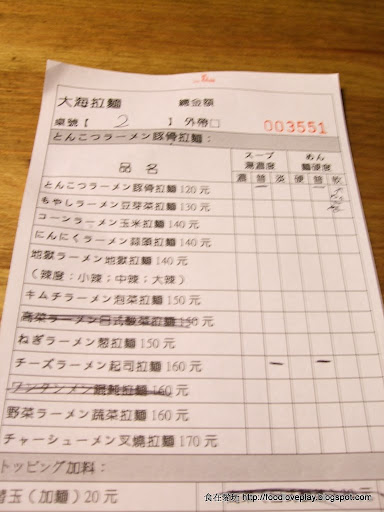 大海拉麵 總金額
桌號【 2 】外帶□ 003551
とんこつラーメン豚骨拉麵：
品名 スープ 湯濃度 めん 麵硬度
濃 普 淡 硬 普 軟
とんこつラーメン豚骨拉麵 120 元
もやしラーメン豆芽菜拉麵 130 元
コーンラーメン玉米拉麵 140 元
にんにくラーメン蒜頭拉麵 140 元
地獄ラーメン地獄拉麵 140 元
（辣度：小辣；中辣；大辣）
キムチラーメン泡菜拉麵 150 元
高菜ラーメン日式酸菜拉麵 150 元
ねぎラーメン葱拉麵 150 元
チーズラーメン起司拉麵 160 元
ワンタンメン餛飩拉麵 160 元
野菜ラーメン蔬菜拉麵 160 元
チャーシューメン叉燒拉麵 170 元
トッピング加料：
替玉（加麵）20 元
食在愛玩 http://foodloveplay.blogspot.com